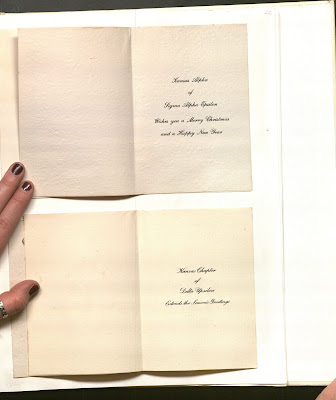 Kansas Alpha
of
Sigma Alpha Epsilon
Wishes you a Merry Christmas
and a Happy New Year
Kansas Chapter
of
Delta Upsilon
Extends the Season's Greetings